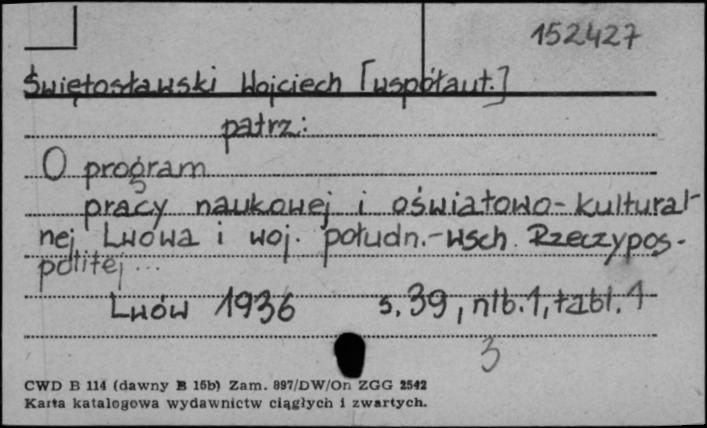 152427
Świętosławski Wojciech [współaut.]
patrz:
O program
pracy naukowej i oświatowo-kultural-
nej Lwowa i woj. połudn.-wsch. Rzeczypos-
politej...
Lwów 1936 s. 39, nlb. 1, tabl. 1
3
CWD B 114 (dawny B 15b) Zam. 897/DW/On ZGG 2542
Karta katalogowa wydawnictw ciągłych i zwartych.